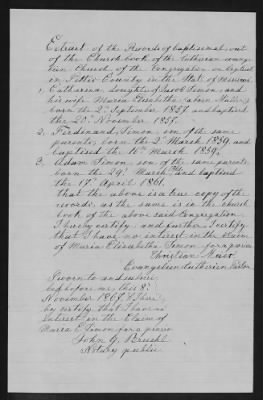 Extract of the Records of baptismal, out
of the Church book of the Lutheran evange
lian Church of the Congregation on
in Pettis County in the State of Missouri
1. Catharina, daughter of Jacob Simon, and
his wife Maria Elisabetha, a born Müller,
born the 2d September 1857 and baptised
the 20th November 1857.
2. Ferdinand Simon, son of the same
parents, born the 2d March 1859 and
baptised the 16th March 1859.
3. Adam Simon, son of the same parents
born the 29th March and baptised
the 17th April 1861.
That the above is a true copy of the
records, as the same is in the church
book of the above said Congregation
I hereby certify, and further I certify
that I have no interest in the claim
of Maria Elisabetha Simon for a pension
Christian
Evangelien Lutherien Pastor
Sworn to and subscri
bed before me this 8th
November 1867 & I here
by certify, that I have no
interest in the Claim of
Maria E Simon for a pension
John G. Bruehl
Notary public